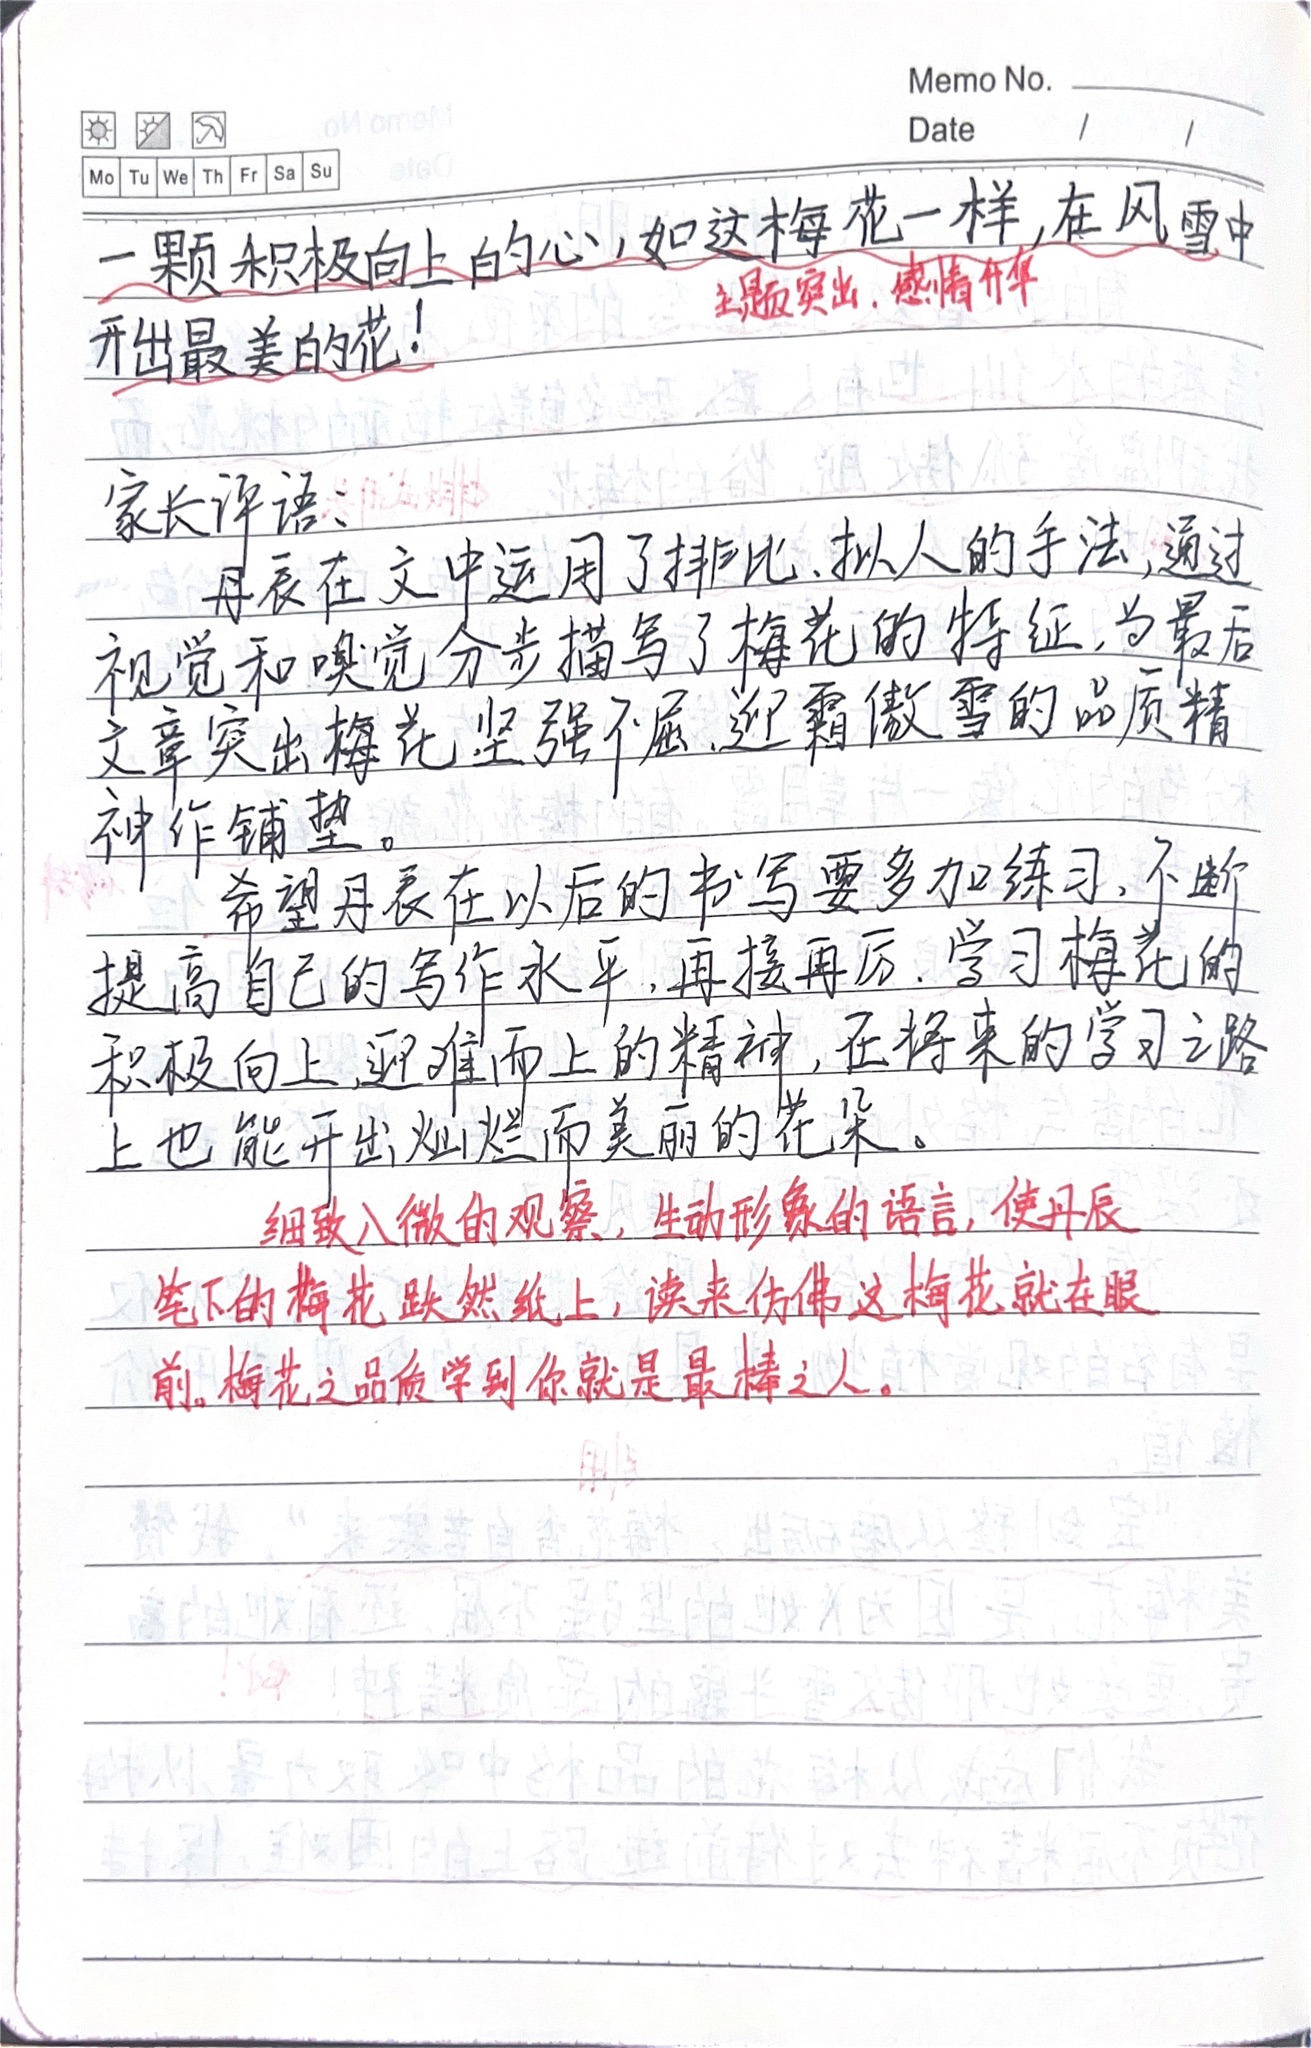 Memo No.
Date / /
Mo Tu We Th Fr Sa Su
一颗积极向上的心,如这梅花一样,在风雪中
主题突出、感情升华
开出最美的花!
家长评语:
丹辰在文中运用了排比、拟人的手法,通过
视觉和嗅觉分步描写了梅花的特征,为最后
文章突出梅花坚强不屈、迎霜傲雪的品质精
神作铺垫。
希望丹辰在以后的书写要多加练习、不断
提高自己的写作水平,再接再厉、学习梅花的
积极向上、迎难而上的精神,在将来的学习之路
上也能开出灿烂而美丽的花朵。
细致入微的观察,生动形象的语言,使丹辰
笔下的梅花跃然纸上,读来仿佛这梅花就在眼
前。梅花之品质学到你就是最棒之人。